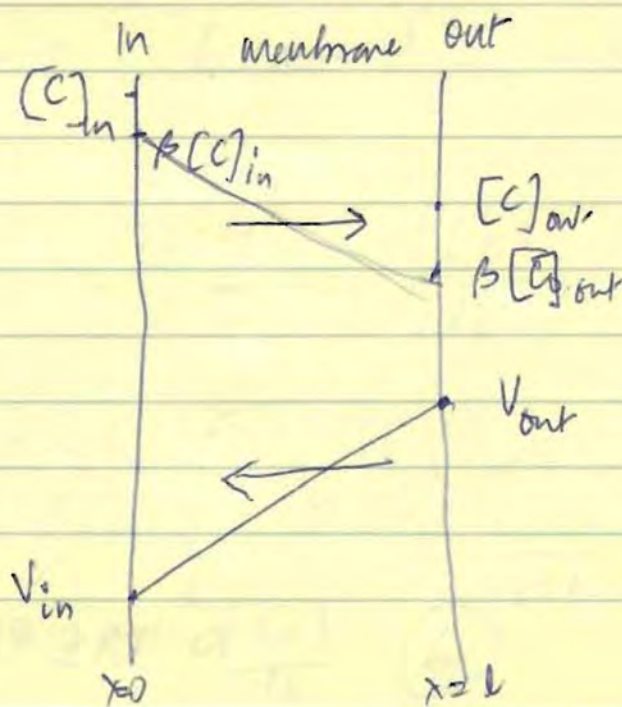 In membrane out
[C]in
β[C]in
[C]out
β[C]out
Vout
Vin
x=0 x=l